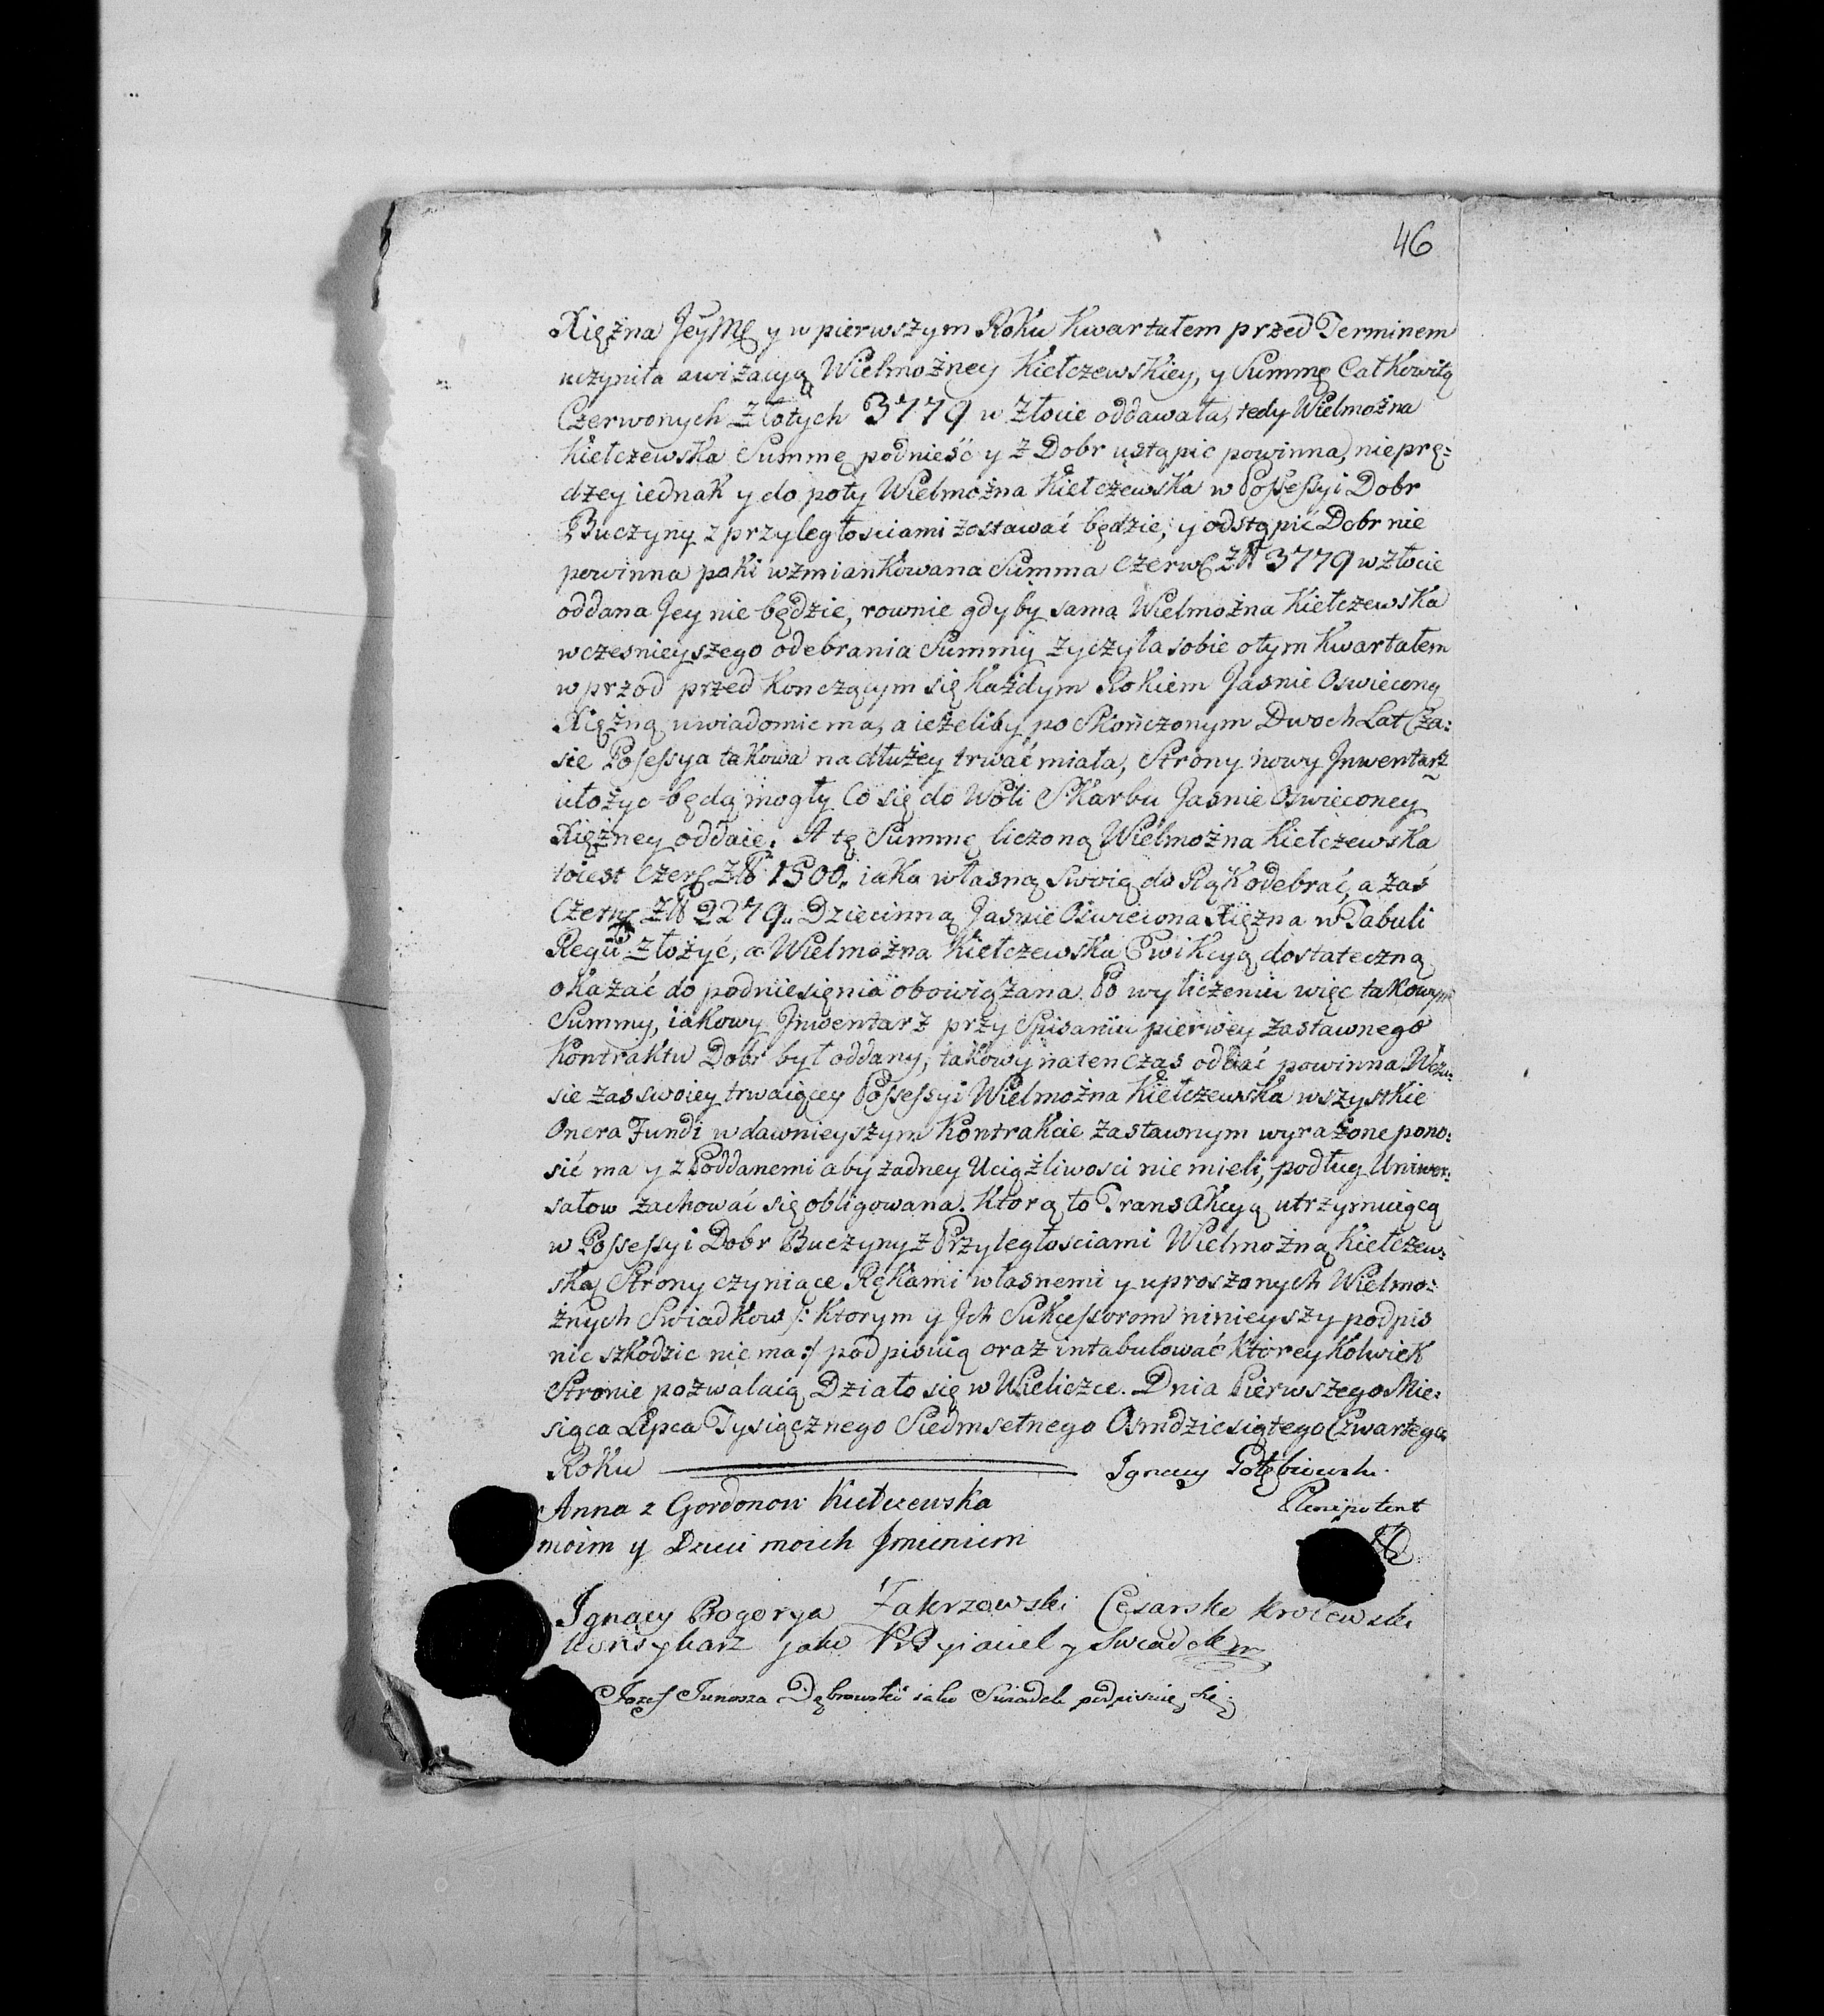 46
Xiężna JeyMę y w pierwszym Roku Kwartałem przed Terminem
uczyniła awizacyą Wielmożney Kiełczewskiey, y Summę Całkowitą
Czerwonych Złotych 3779 w Złocie oddawała, tedy Wielmożna
Kiełczewska Summę podnieść y z Dobr ustąpic powinna, nieprę:
dzey iednak y do poty Wielmożna Kiełczewska w Possessyi Dobr
Buczyny z przyległosciami zostawać będzie, y odstąpić Dobr nie
powinna poki wzmiankowana Summa Czerw Złł 3779 w złocie
oddana Jey nie będzie, rownie gdyby sama Wielmożna Kiełczewska
wczesnieyszego odebrania Summy życzyła sobie o tym Kwartałem
wprzod przed Konczącym się Każdym Rokiem Jasnie Oswieconą
Xiężną uwiadomic ma, a ieżeliby po Skończonym Dwoch Lat Cza:
sie Possessya takowa na dłużey trwać miała, Strony nowy Jnwentarz
ułożyc będą mogły Co się do Woli Skarbu Jasnie Oswieconey
Xiężney oddaie. A tę Summę liczoną Wielmożna Kiełczewska
toiest Czer Złł 1500. iaka własną Swoią do Rąk odebrać, a zaś
Czerw Złł 2279. Dziecinną Jasnie Oswiecona Xiężna w Tabuli
Regii Złożyć, a Wielmożna Kiełczewska Ewikcyą dostateczną
okazać do podniesienia obowiązana. Po wyliczeniu więc takowym
Summy, iakowy Jnwentarz przy Spisaniu pierwey zastawnego
Kontraktu Dobr był oddany, takowy natenczas oddać powinna. Wcza:
sie zas swoiey trwaiącey Possessyi Wielmożna Kiełczewska wszystkie
Onera Fundi w dawnieyszym Kontrakcie zastawnym wyrażone pono:
sić ma y z Poddanemi aby żadney Uciążliwosci nie mieli, podług Uniwer:
sałow zachować się obligowana. Ktorą to Transakcyą utrzymuiącą
w Possessyi Dobr Buczyny z Przyległosciami Wielmożną Kiełczew:
ską Strony czyniące Rękami własnemi y uproszonych Wielmo:
żnych Swiadkow /: Ktorym y Jch Sukcessorom ninieyszy podpis
nic szkodzic nie ma :/ podpisuią oraz intabulować Ktorey Kolwiek
Stronie pozwalaią Działo się w Wieliczce. Dnia Pierwszego Mie:
siąca Lipca Tysiącznego Siedmsetnego Osmdziesiątego Czwartego
Roku
Ignacy Gołębiowski
Plenipotent
Anna z Gordonow Kiełczewska
moim y Dzieci moich Jmieniem
Ignacy Bogorya Zakrzewski Cesarsko Krolewski
Konsyliarz jako Przyiaciel y Swiadek
Jozef Junosza Dąbrowski iako Swiadek podpisuię się